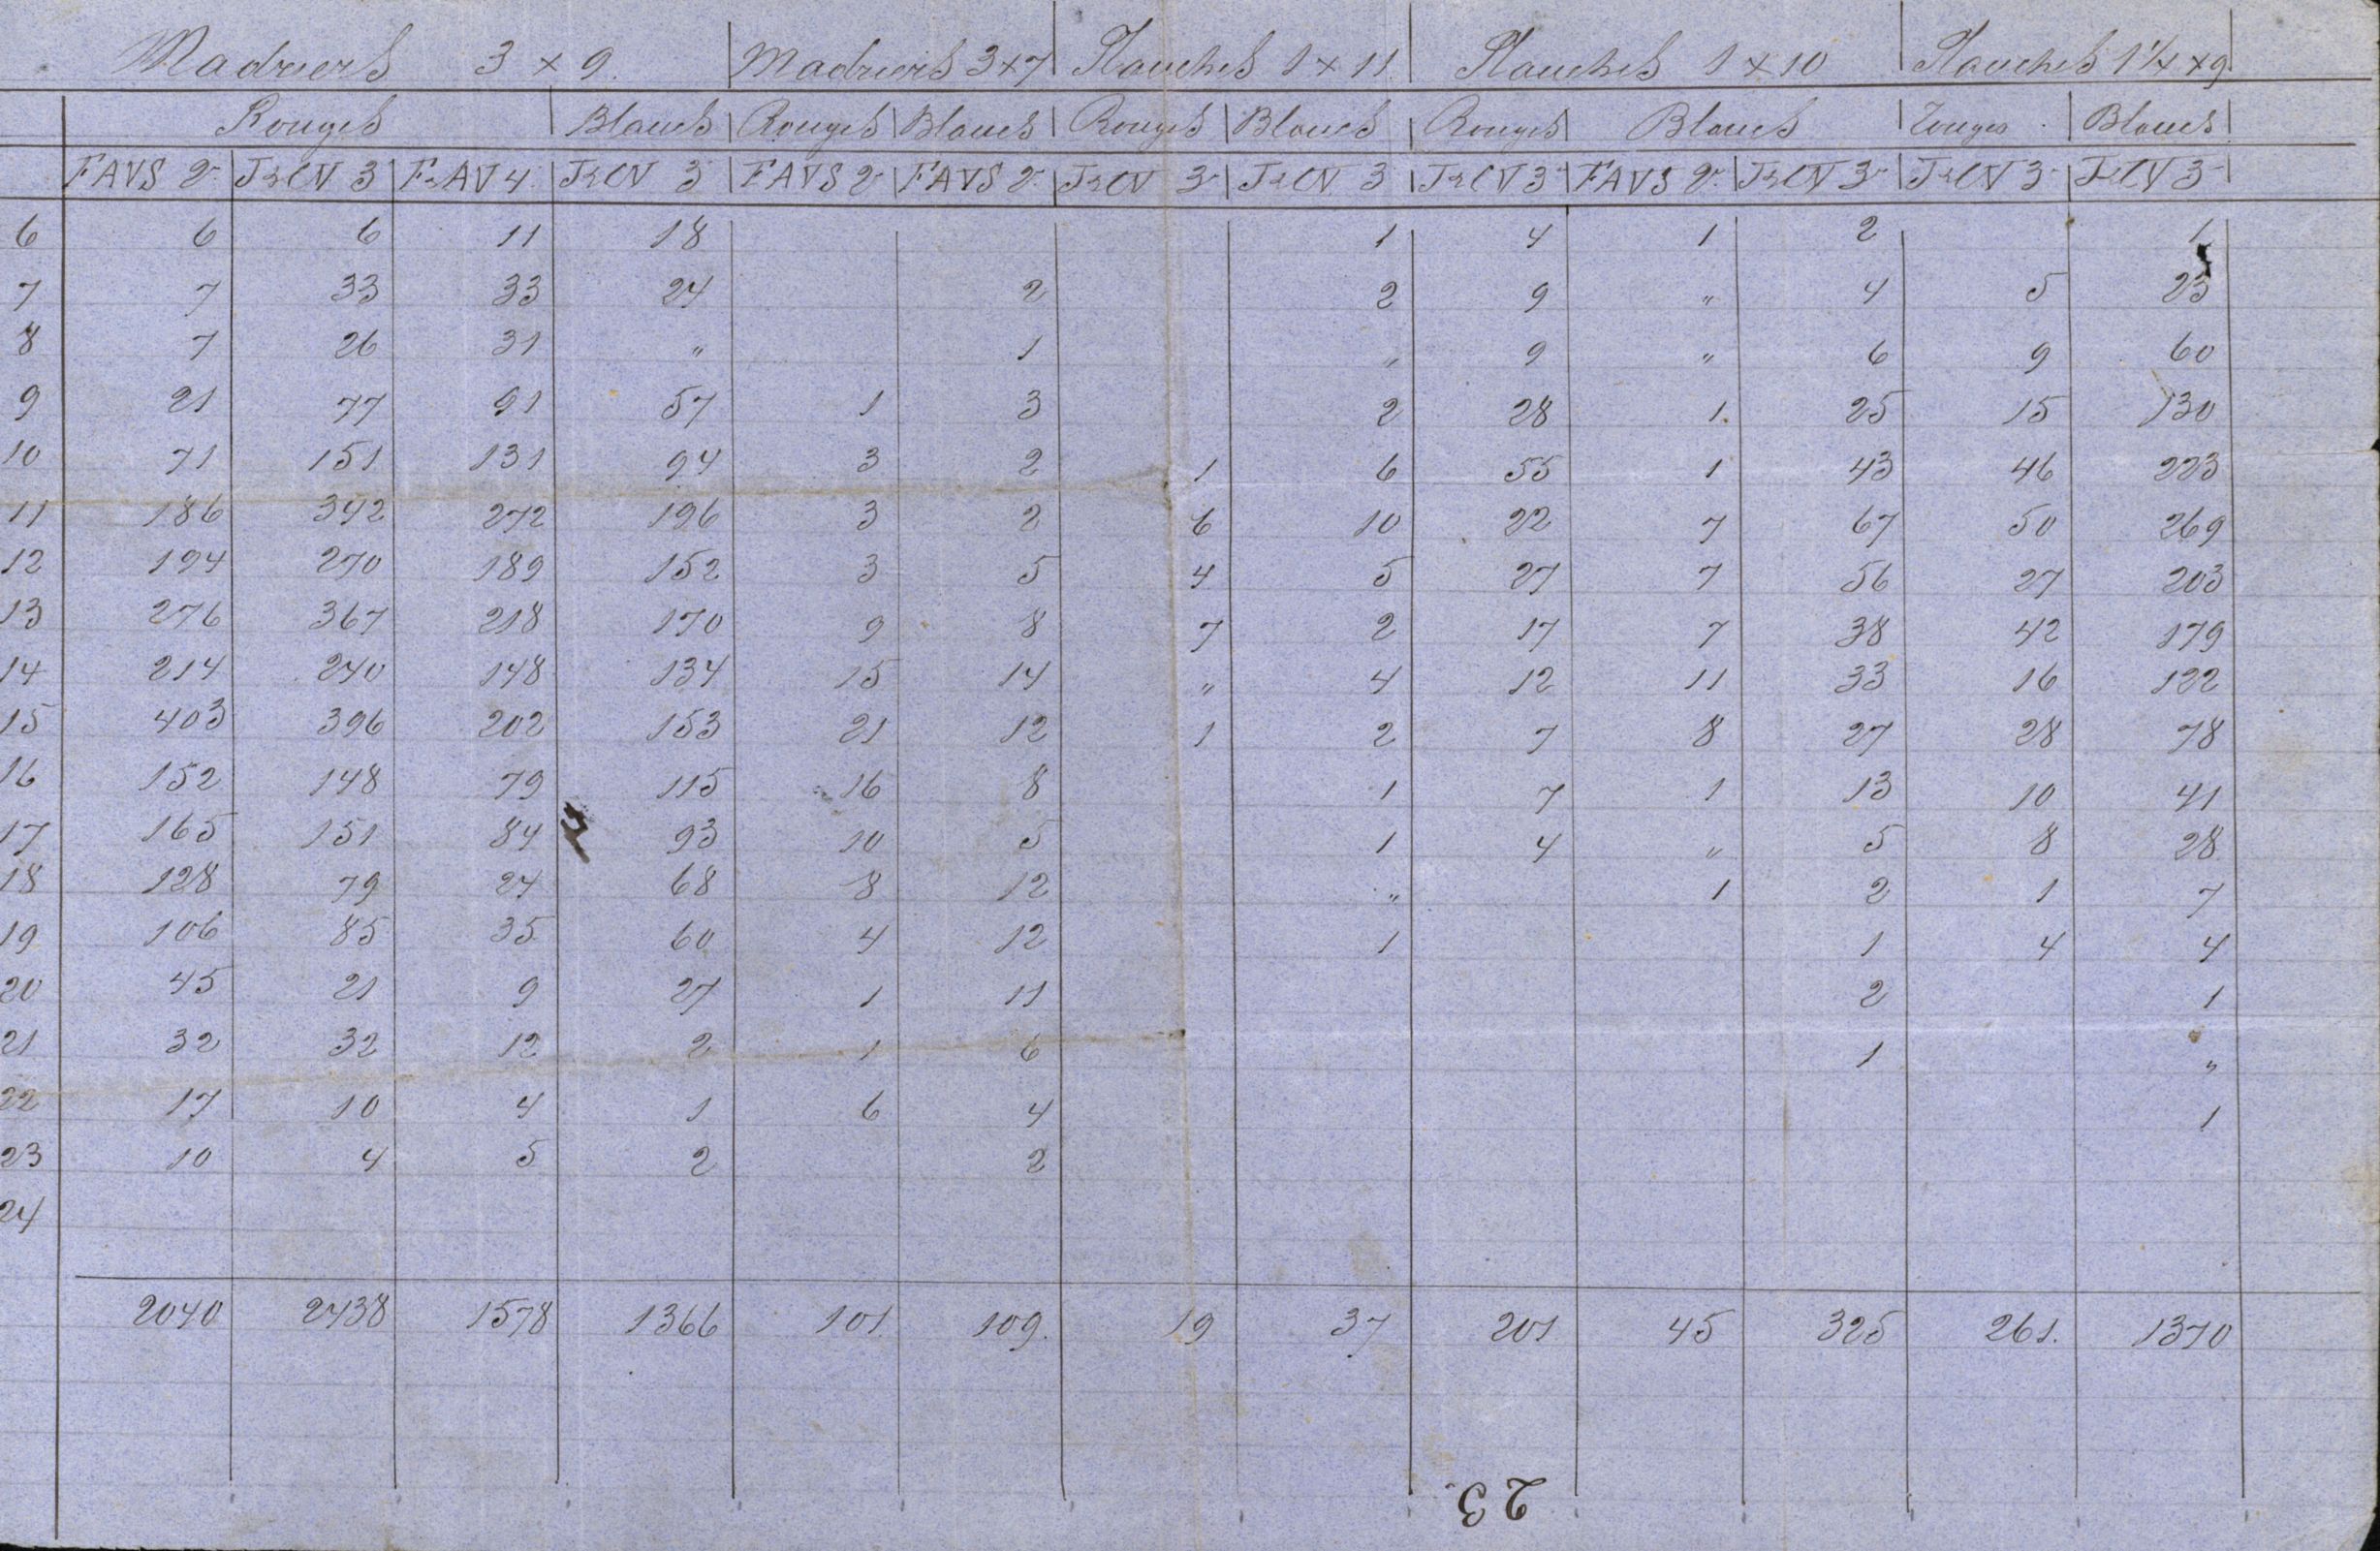 Madriers 3 × 9. Madriers 3×7 Planches 1 × 11 Planches 1 × 10 Planches 1¼ × 9
Rouges Blancs Rouges Blancs Rouges Blancs Rouges Blancs Rouges Blancs
FAVS 2 JrCN 3 FrAV 4 JrCN 3 FAVS 2 FAVS 2 JrCN 3 JrCN 3 JrCN 3 FAVS 2 JrCN 3 JrCN 3 JrCN 3
6 6 6 11 18 1 4 1 2 1
7 7 33 33 24 2 2 9 " 4 5 23
8 7 26 31 " 1 " 9 " 6 9 60
9 21 77 91 57 1 3 2 28 1. 25 15 130
10 71 151 131 94 3 2 1 6 55 1 43 46 223
11 186 342 272 196 3 2 6 10 22 7 67 50 269
12 194 270 189 152 3 5 4 5 27 7 56 27 203
13 276 367 218 170 9 8 7 2 17 7 38 42 179
14 214 240 148 134 15 14 " 4 12 11 33 16 122
15 403 396 202 153 21 12 1 2 7 8 27 28 78
16 152 148 79 115 16 8 1 7 1 13 10 41
17 165 151 84 93 10 5 1 4 " 5 8 28
18 128 79 24 68 8 12 " 1 2 1 7
19 106 85 35 60 4 12 1 1 4 4
20 45 21 9 27 1 11 2 1
21 32 32 12 2 1 6 1 "
22 17 10 4 1 6 4 1
23 10 4 5 2 2
24
2040 2438 1578 1366 101. 109. 19 37 201 45 325 261. 1370
23.